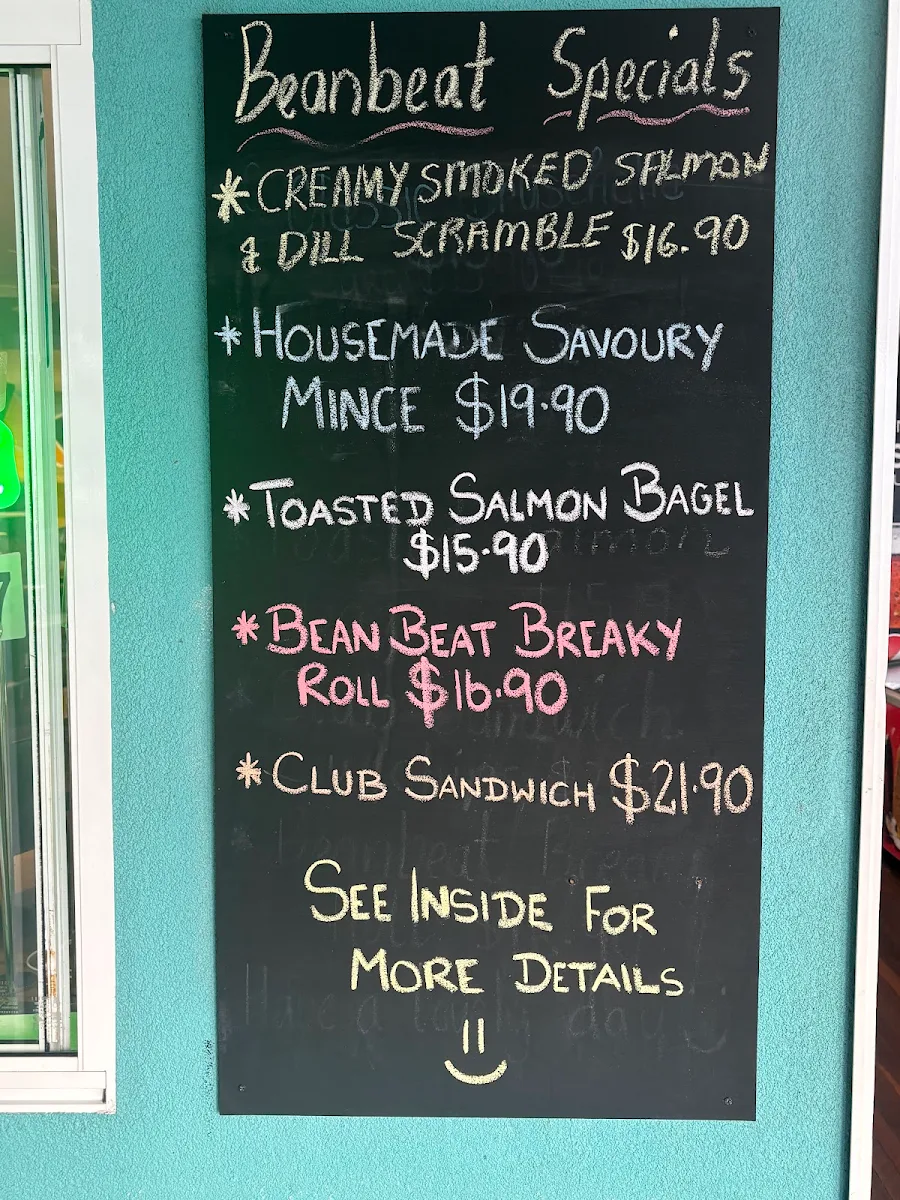 Beanbeat Specials
* CREAMY SMOKED SALMON
& DILL SCRAMBLE $16.90
* HOUSEMADE SAVOURY
MINCE $19.90
* TOASTED SALMON BAGEL
$15.90
* BEAN BEAT BREAKY
ROLL $16.90
* CLUB SANDWICH $21.90
SEE INSIDE FOR
MORE DETAILS